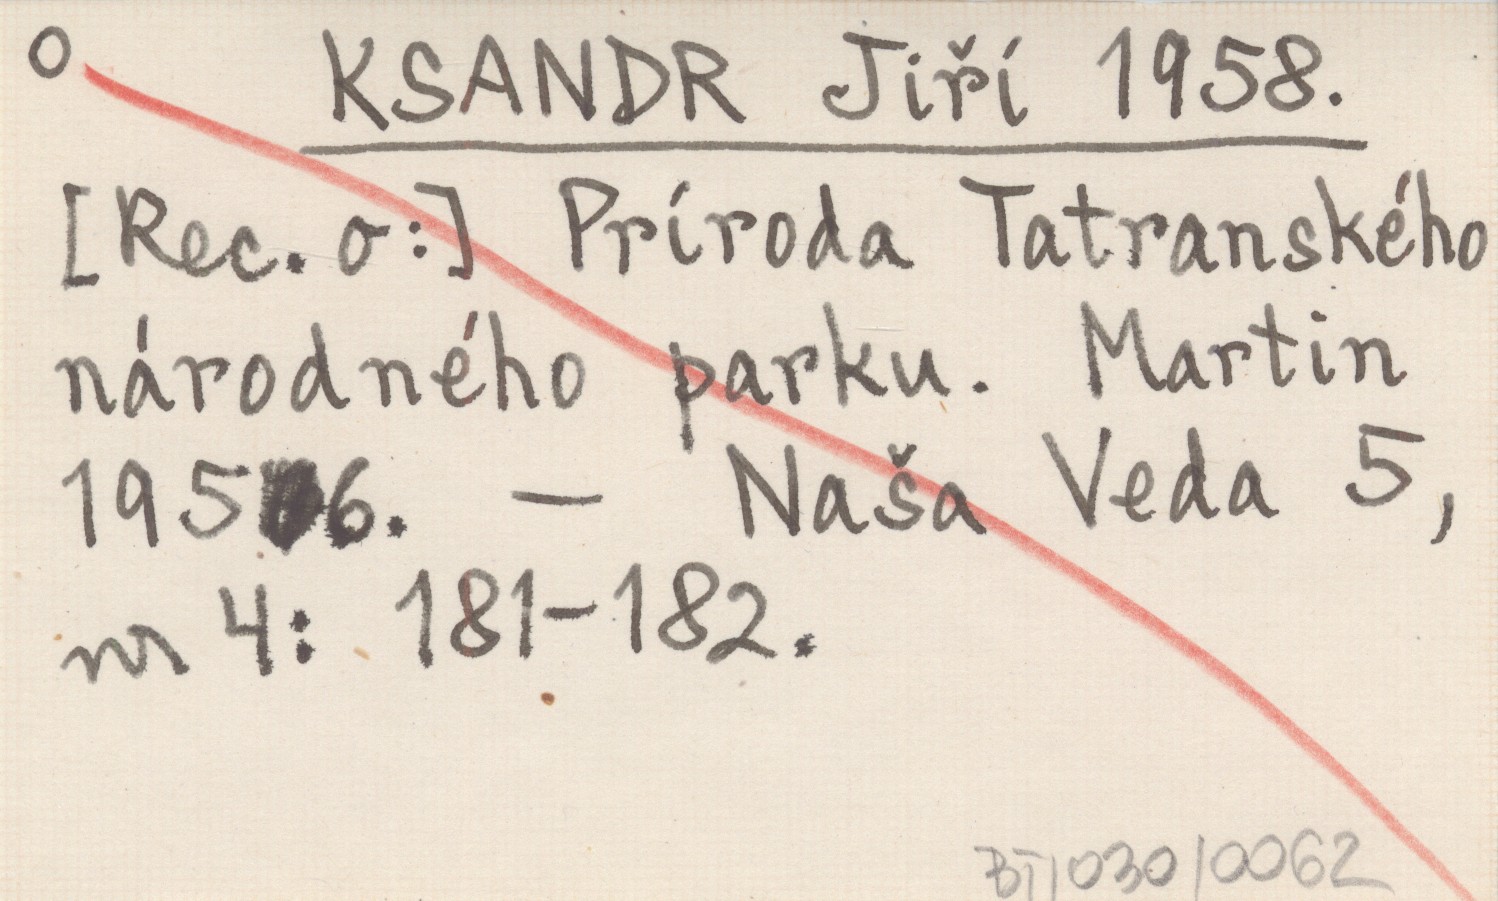 O KSANDR Jiří 1958.
[Rec. o:] Príroda Tatranského
národného parku. Martin
1956. — Naša Veda 5,
nr 4: 181-182.
BT/030/0062